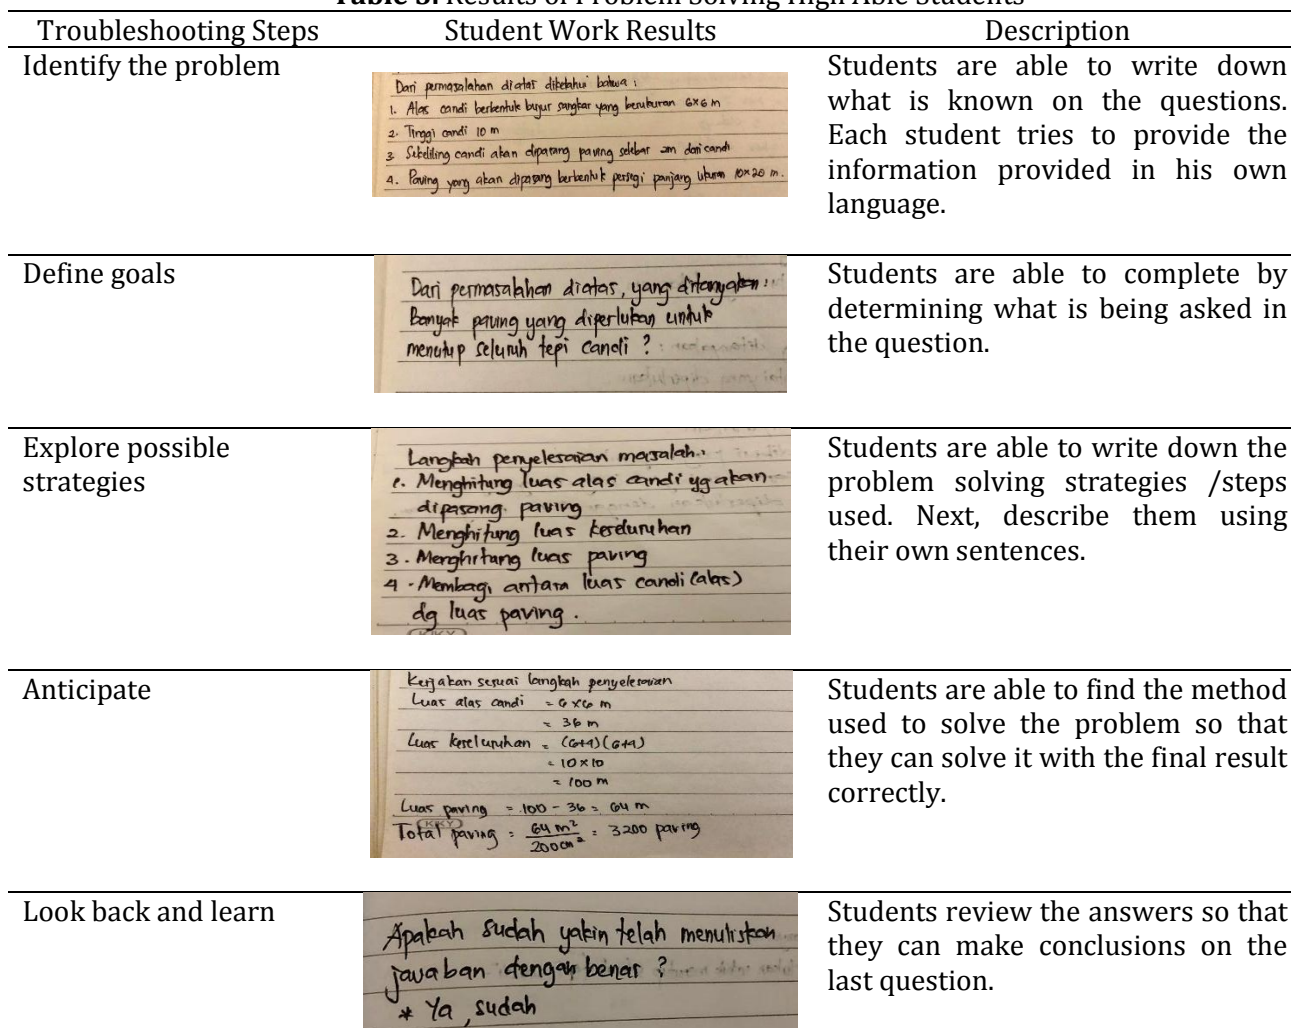 Table 3. Results of Problem Solving High Able Students
Troubleshooting Steps
Student Work Results
Description
Identify the problem
Dari permasalahan diatas diketahui bahwa :
1. Alas candi berbentuk bujur sangkar yang berukuran 6×6 m
2. Tinggi candi 10 m
3. Sekeliling candi akan dipasang paving selebar 2m dari candi
4. Paving yang akan dipasang berbentuk persegi panjang ukuran 10×20 m.
Students are able to write down
what is known on the questions.
Each student tries to provide the
information provided in his own
language.
Define goals
Dari permasalahan diatas, yang ditanyakan :
Banyak paving yang diperlukan untuk
menutup seluruh tepi candi ?
Students are able to complete by
determining what is being asked in
the question.
Explore possible
strategies
Langkah penyelesaian masalah :
1. Menghitung luas alas candi yg akan
dipasang paving
2. Menghitung luas keseluruhan
3. Menghitung luas paving
4. Membagi antara luas candi (alas)
dg luas paving.
Students are able to write down the
problem solving strategies /steps
used. Next, describe them using
their own sentences.
Anticipate
Kerjakan sesuai langkah penyelesaian
Luas alas candi = 6 x 6 m
= 36 m
Luas keseluruhan = (6+4)(6+4)
= 10 × 10
= 100 m
Luas paving = 100 - 36 = 64 m
Total paving = 64 m² / 200 cm² = 3200 paving
Students are able to find the method
used to solve the problem so that
they can solve it with the final result
correctly.
Look back and learn
Apakah sudah yakin telah menuliskan
jawaban dengan benar ?
* Ya, sudah
Students review the answers so that
they can make conclusions on the
last question.